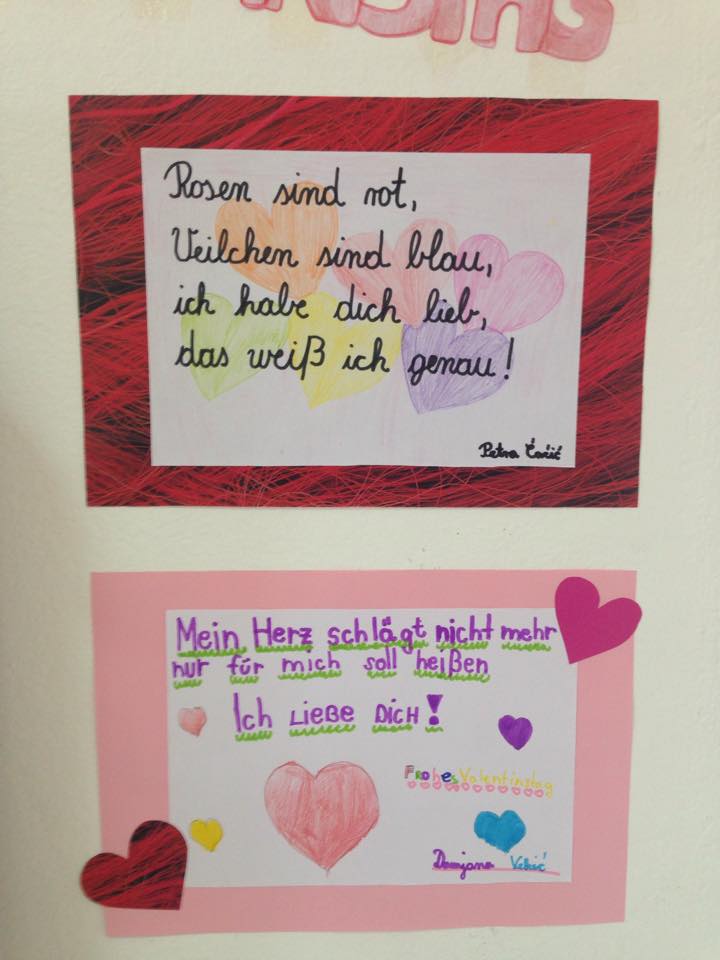 Rosen sind rot,
Veilchen sind blau,
ich habe dich lieb,
das weiß ich genau!
Petra
Mein Herz schlägt nicht mehr
nur für mich soll heißen
Ich LIEBE DICH!
FROhes Valentinstag
Damjana